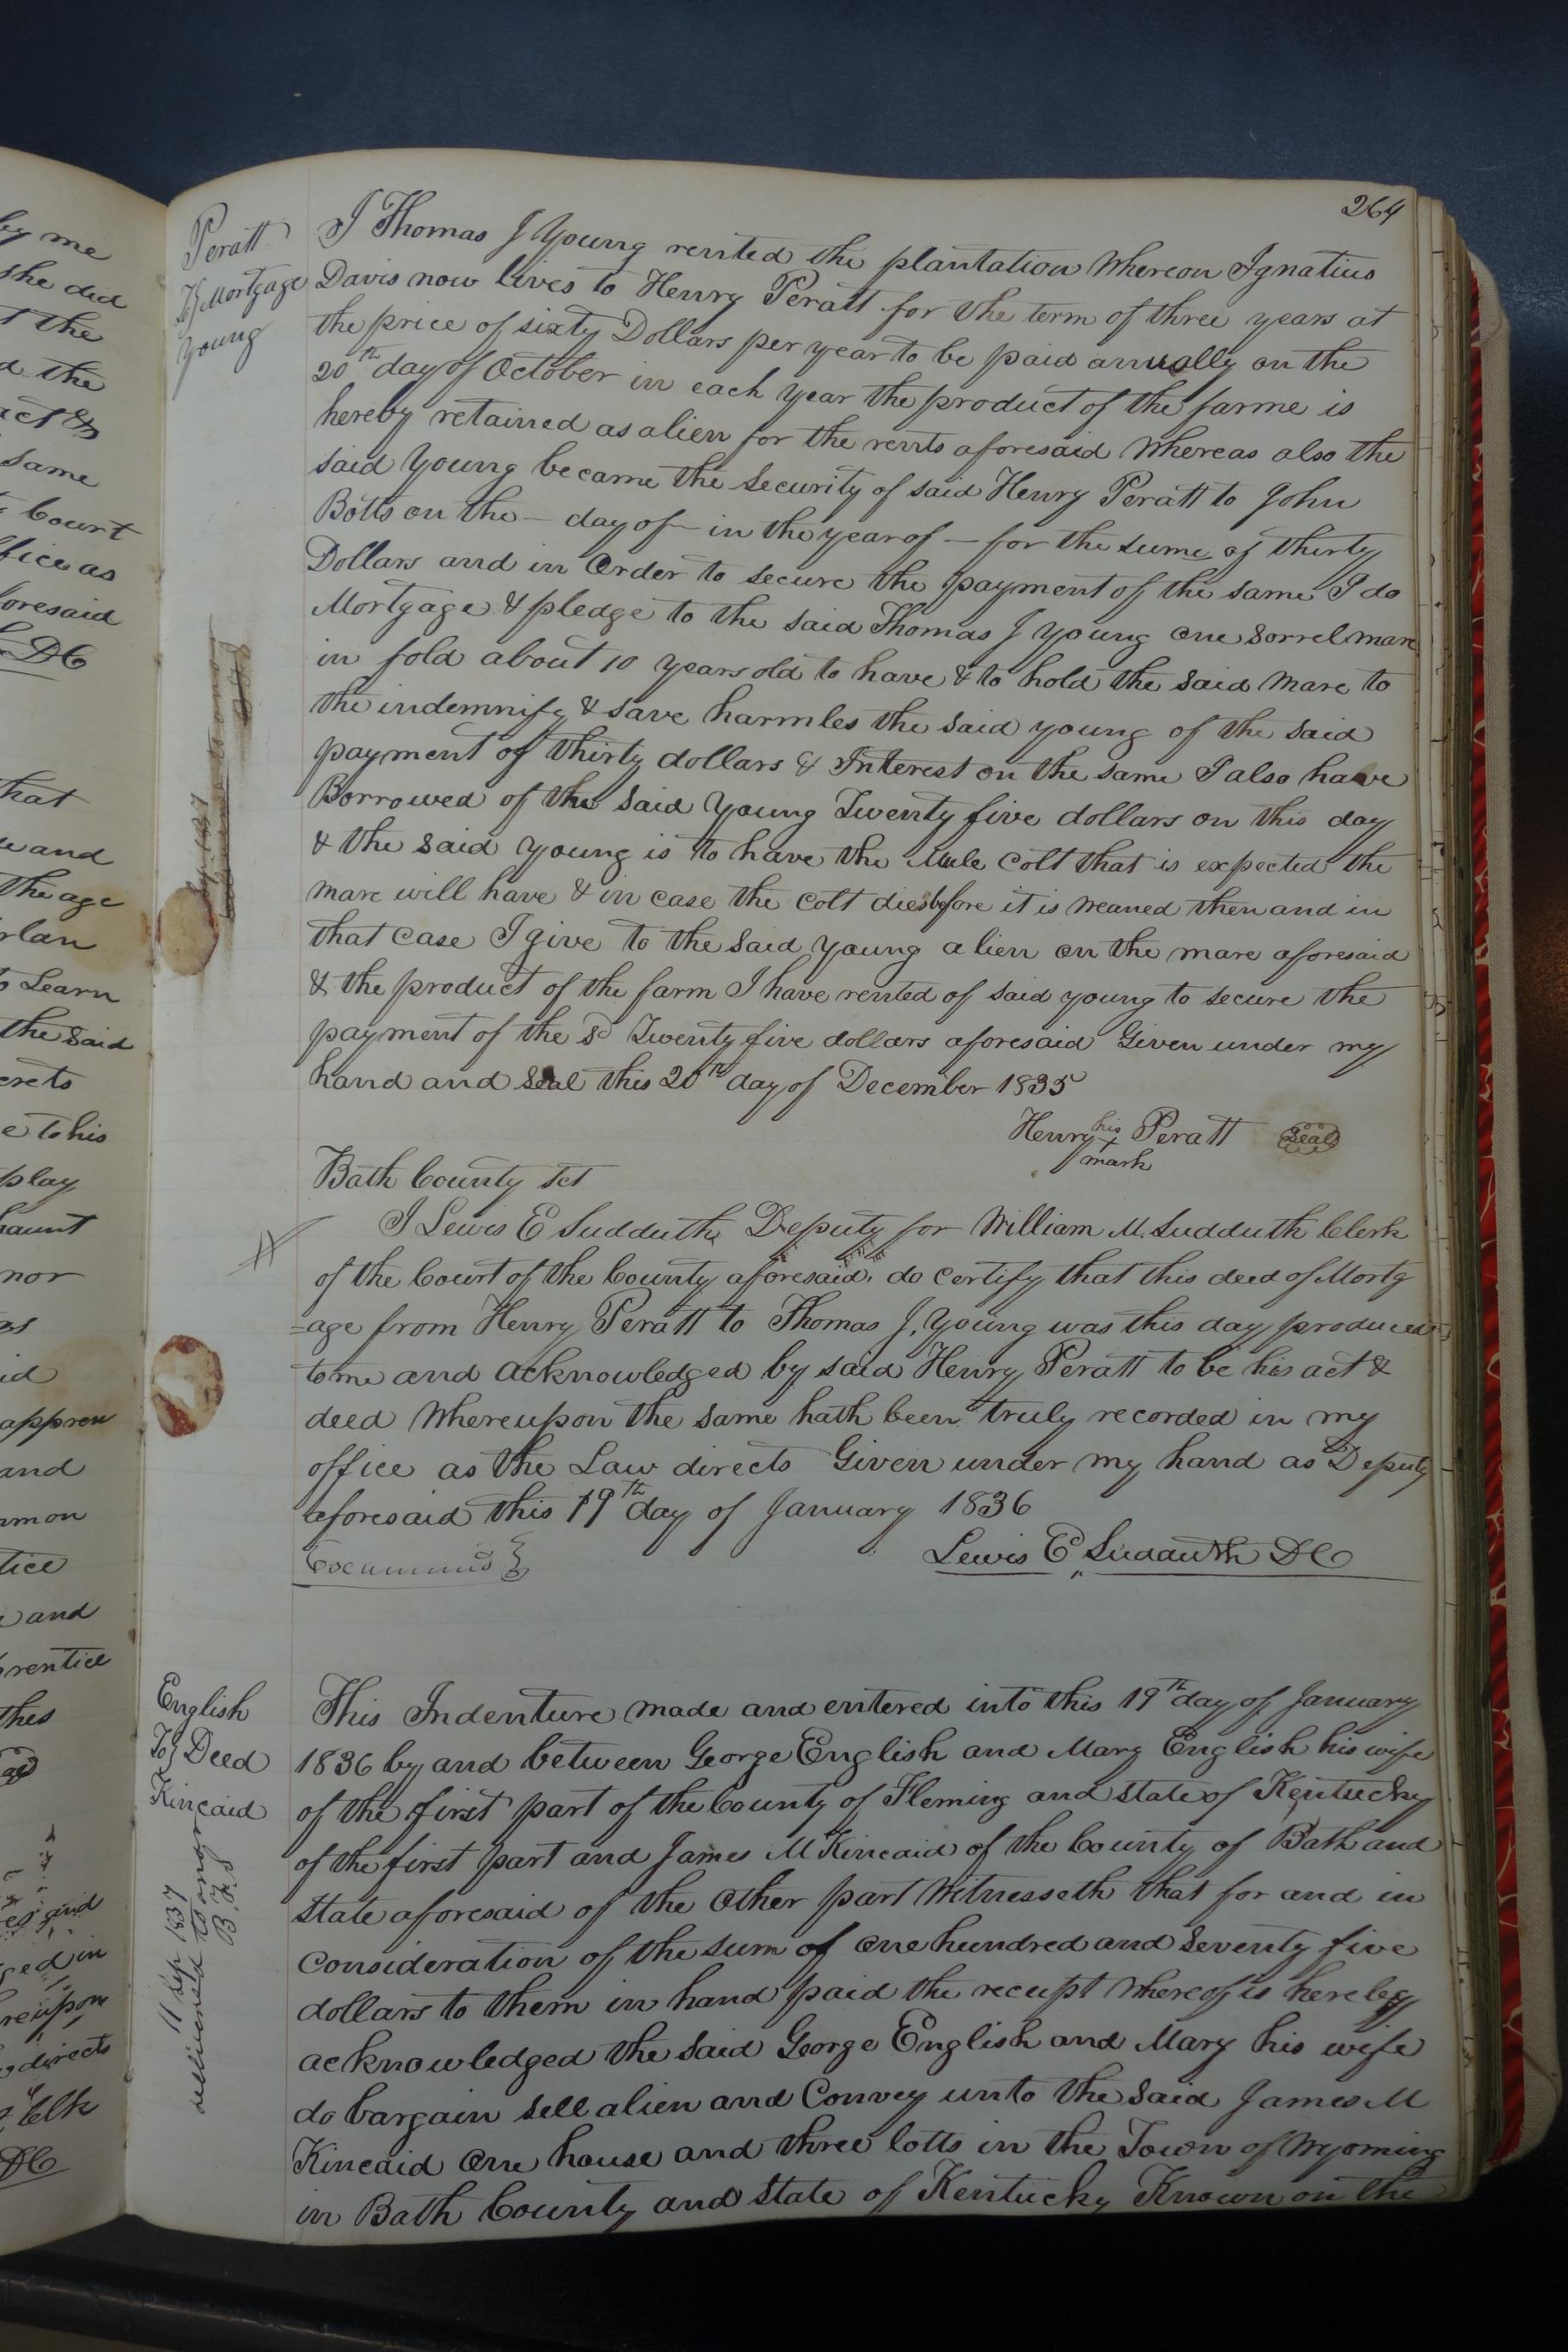 264
Peratt
To} Mortgage
Young
I Thomas J Young rented the plantation whereon Ignatius
Davis now lives to Henry Peratt for the term of three years at
the price of sixty Dollars per year to be paid annually on the
20th day of October in each year the product of the farme is
hereby retained as a lien for the rents aforesaid Whereas also the
said Young became the security of said Henry Peratt to John
Botts on the — day of — in the year of — for the sume of thirty
Dollars and in Order to secure the payment of the same I do
Mortgage & pledge to the said Thomas J Young one sorrel mare
in fold about 10 years old to have & to hold the said mare to
the indemnify & save harmles the said young of the said
payment of thirty dollars & Interest on the same I also have
Borrowed of the said Young Twenty five dollars on this day
& the said Young is to have the Mule colt that is expected the
mare will have & in case the colt dies before it is weaned then and in
that case I give to the said Young a lien on the mare aforesaid
& the product of the farm I have rented of said young to secure the
payment of the sd Twenty five dollars aforesaid Given under my
hand and seal this 20th day of December 1835
Henry his x mark Peratt Seal
Bath County Sct
I Lewis E Sudduth Deputy for William M. Sudduth Clerk
of the Court of the County aforesaid, do certify that this deed of Mortg
=age from Henry Peratt to Thomas J. Young was this day produced
to me and acknowledged by said Henry Peratt to be his act &
deed Whereupon the same hath been truly recorded in my
office as the Law directs Given under my hand as Deputy
aforesaid this 19th day of January 1836
Lewis E Sudduth DC
English
To} Deed
Kincaid
11 Sep 1837
delivered to
This Indenture made and entered into this 19th day of January
1836 by and between George English and Mary English his wife
of the first part of the County of Fleming and state of Kentucky
of the first part and James M Kincaid of the County of Bath and
State aforesaid of the other part Witnesseth that for and in
consideration of the sum of one hundred and seventy five
dollars to them in hand paid the receipt whereof is hereby
acknowledged the said George English and Mary his wife
do bargain sell alien and Convey unto the said James M
Kincaid one house and three lotts in the Town of Wyoming
in Bath County and State of Kentucky Known on the